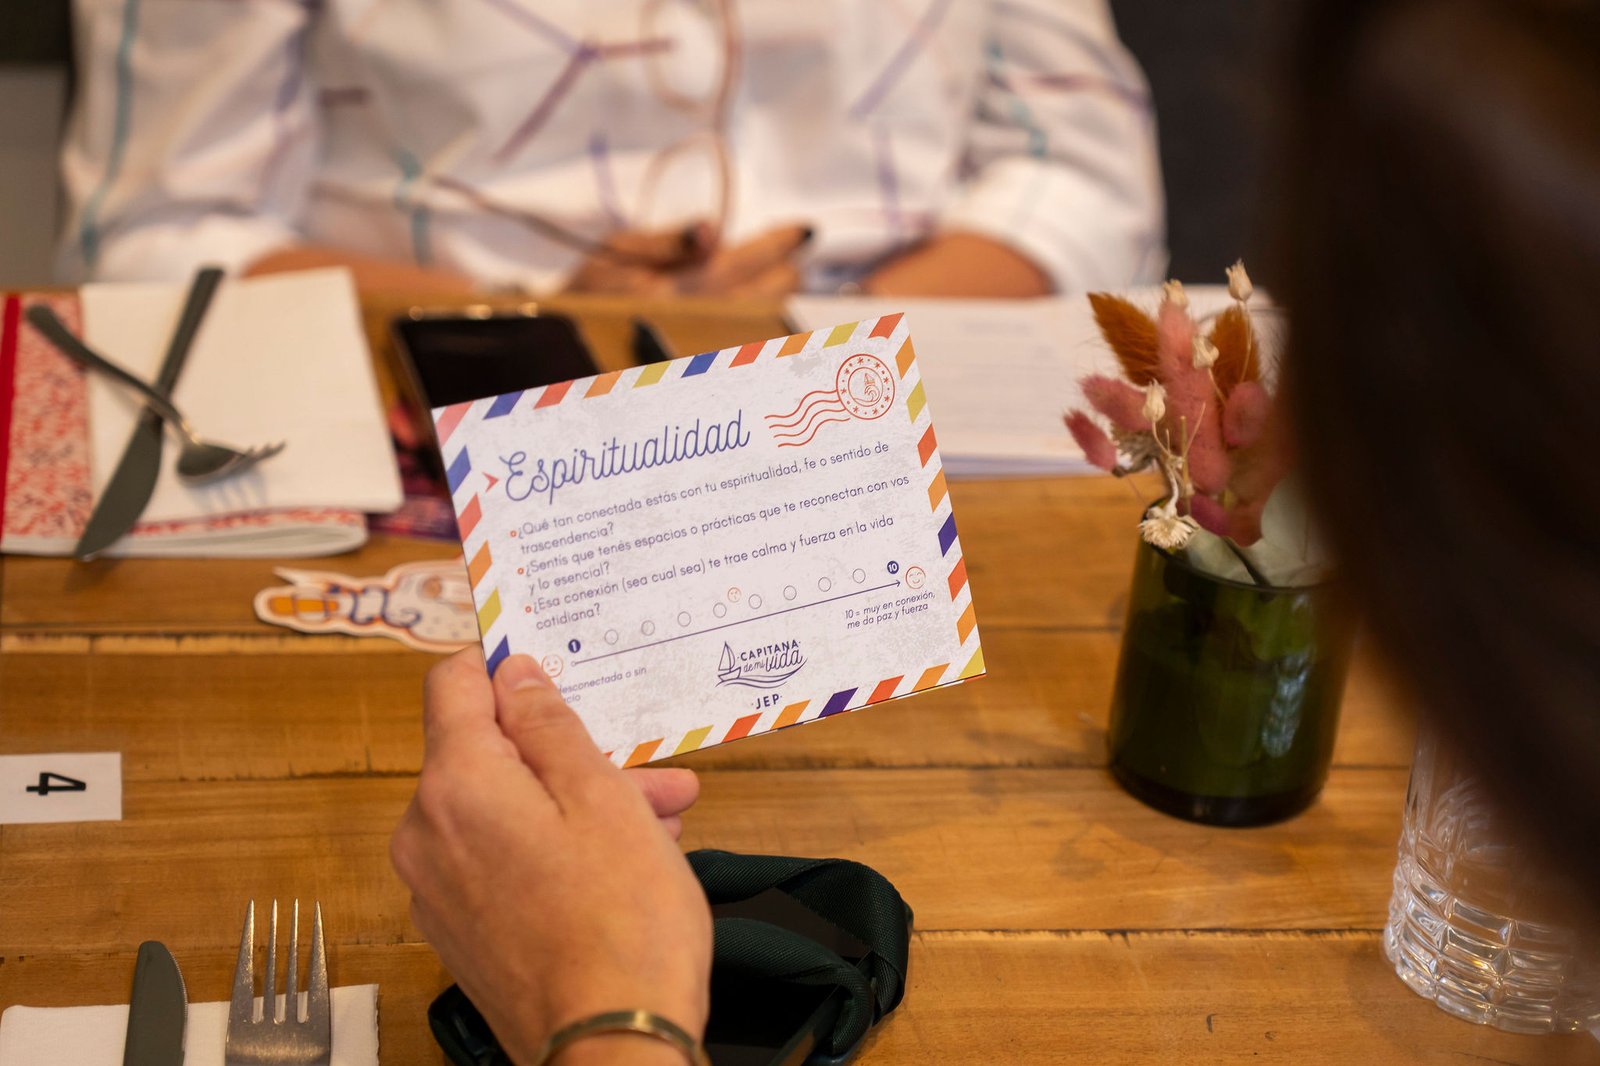 Espiritualidad
¿Qué tan conectada estás con tu espiritualidad, fe o sentido de
trascendencia?
¿Sentís que tenés espacios o prácticas que te reconectan con vos
y lo esencial?
¿Esa conexión (sea cual sea) te trae calma y fuerza en la vida
cotidiana?
1
10
desconectada o sin
10 = muy en conexión,
me da paz y fuerza
CAPITANA
de mi vida
·JEP·
4